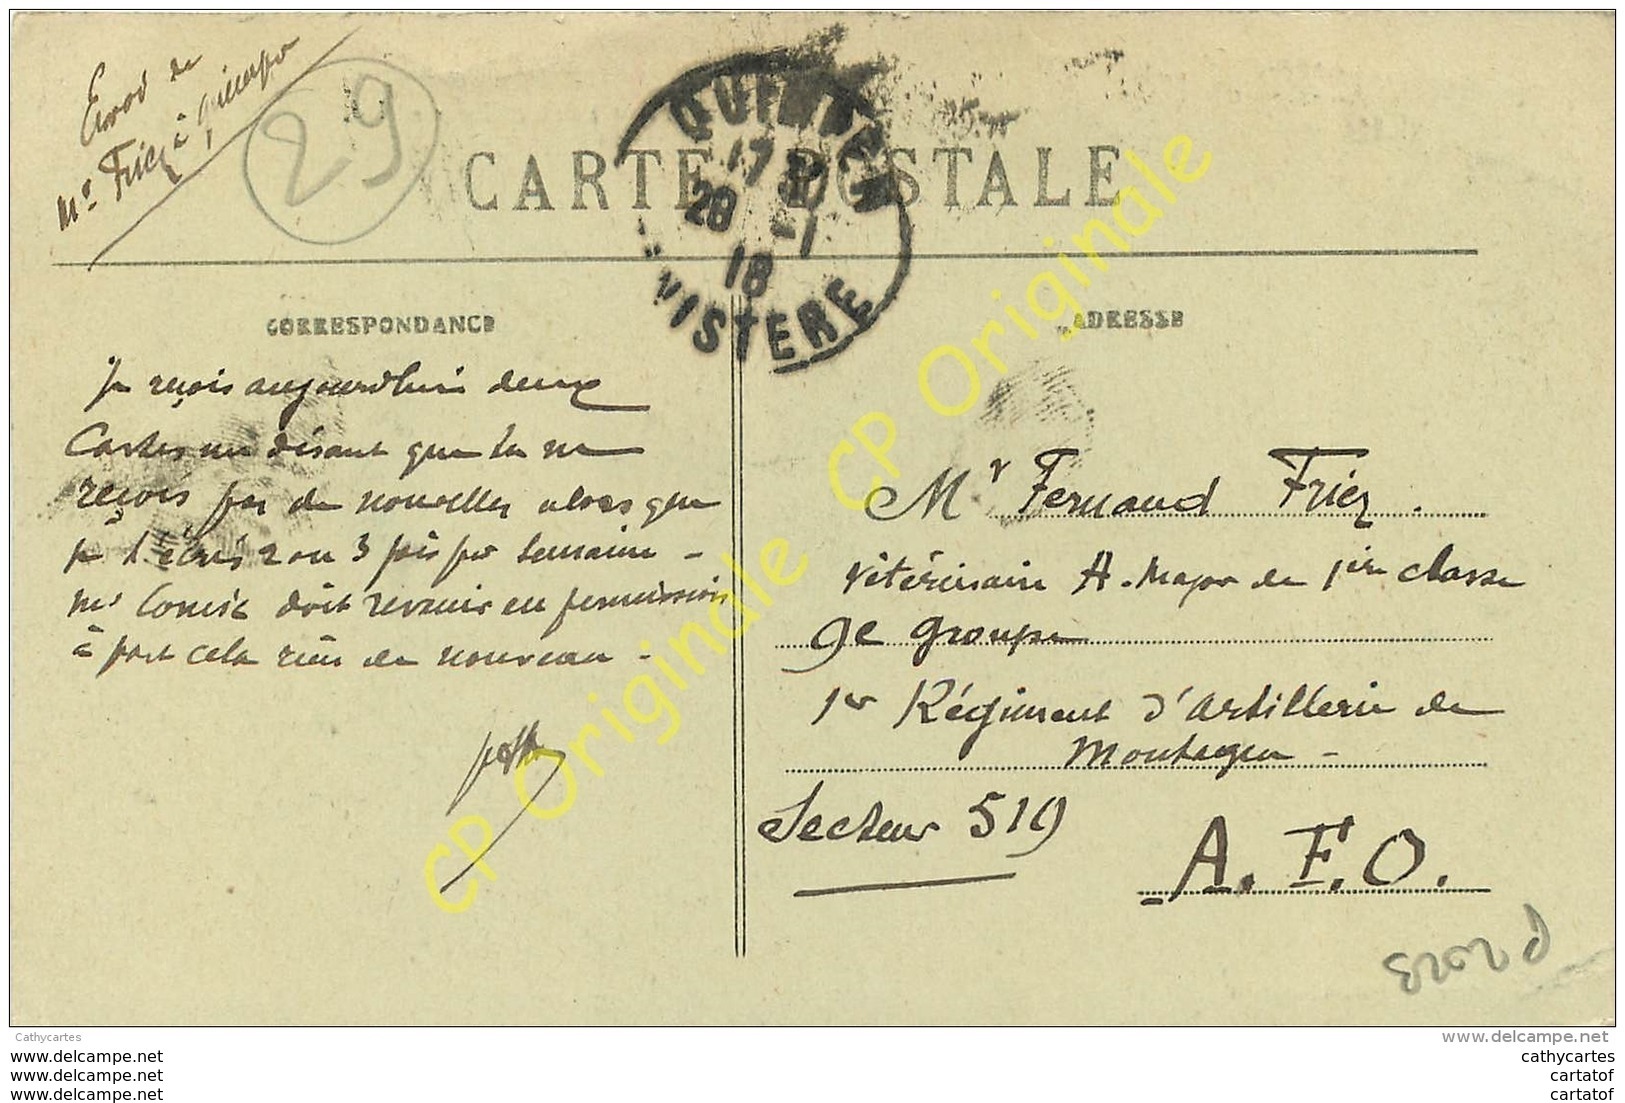 Envoi de
Mr Friez à Quimper
29
CARTE POSTALE
QUIMPER
17
28 -1
18
FINISTERE
CORRESPONDANCE
ADRESSE
je reçois aujourd'hui deux
Cartes me disant que tu ne
reçois pas de nouvelles alors que
je t'écris 2 ou 3 fois par semaine -
doit revenir en permission
à part cela rien de nouveau -
Mr Fernand Friez.
Vétérinaire A. Major de 1ère classe
9e groupe
1er Régiment d'Artillerie de
Montagne -
Secteur 519
A. F. O.
P 2023
CP Originale
CP Originale
Cathycartes
www.delcampe.net
www.delcampe.net
www.delcampe.net
www.delcampe.net
cathycartes
cartatof
cartatof